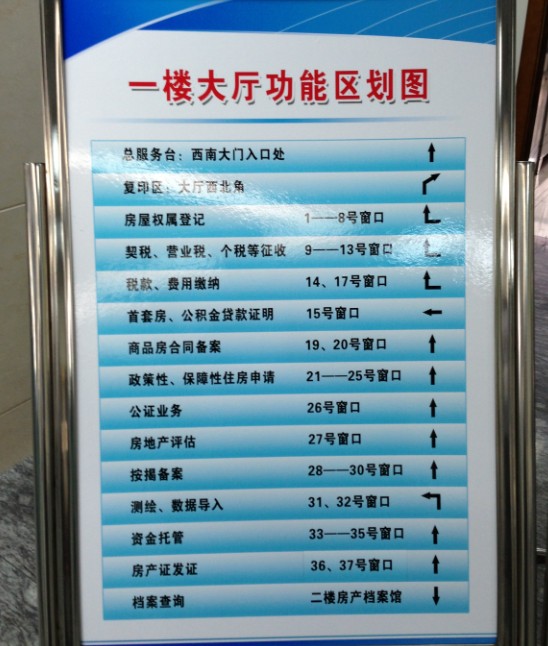 一楼大厅功能区划图
总服务台：西南大门入口处
复印区：大厅西北角
房屋权属登记 1——8号窗口
契税、营业税、个税等征收 9——13号窗口
税款、费用缴纳 14、17号窗口
首套房、公积金贷款证明 15号窗口
商品房合同备案 19、20号窗口
政策性、保障性住房申请 21——25号窗口
公证业务 26号窗口
房地产评估 27号窗口
按揭备案 28——30号窗口
测绘、数据导入 31、32号窗口
资金托管 33——35号窗口
房产证发证 36、37号窗口
档案查询 二楼房产档案馆